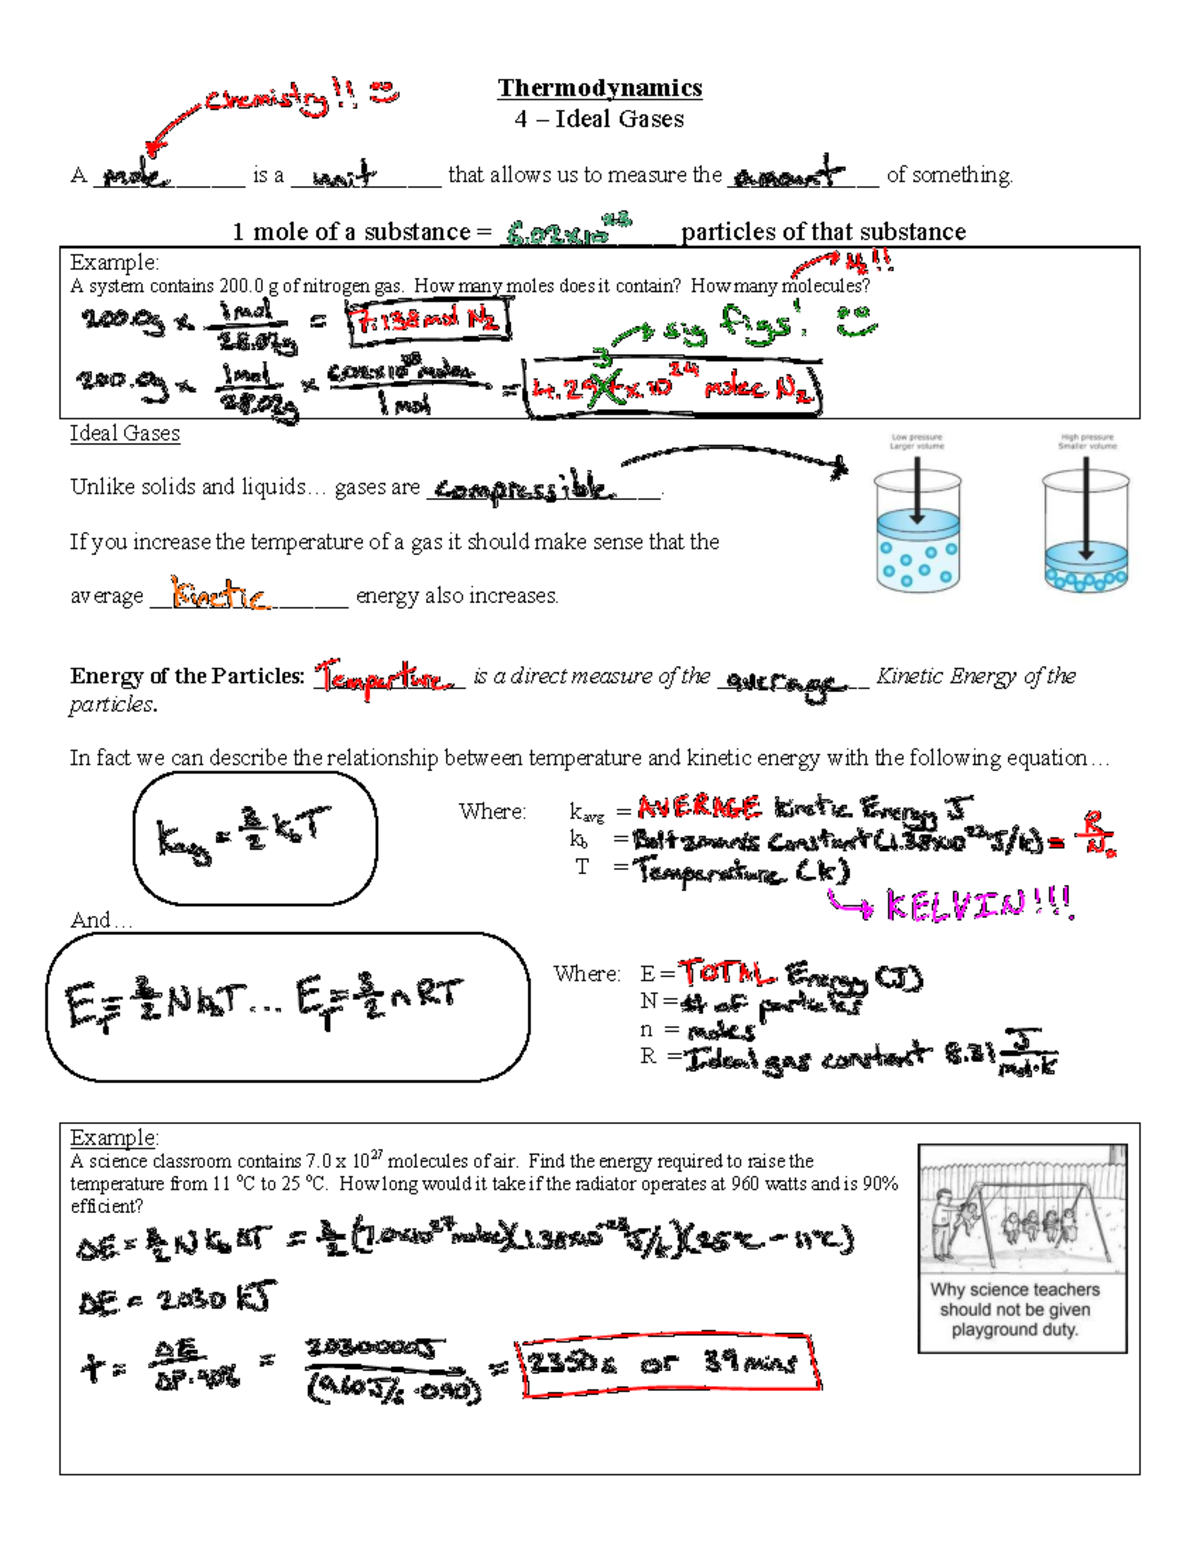 Chemistry!! :)
Thermodynamics
4 – Ideal Gases
A mole is a unit that allows us to measure the amount of something.
1 mole of a substance = 6.02x10^23 particles of that substance
Example:
A system contains 200.0 g of nitrogen gas. How many moles does it contain? How many molecules?
200.0g x 1mol/28.02g = 7.138 mol N₂
→ sig figs! :)
200.0g x 1mol/28.02g x 6.02x10^23 molec/1 mol = 4.29 x 10^24 molec N₂
3
Ideal Gases
Low pressure
Larger volume
High pressure
Smaller volume
Unlike solids and liquids… gases are compressible.
If you increase the temperature of a gas it should make sense that the
average Kinetic energy also increases.
Energy of the Particles: Temperture is a direct measure of the average Kinetic Energy of the
particles.
In fact we can describe the relationship between temperature and kinetic energy with the following equation…
Kavg = 3/2 kbT
Where: kavg = AVERAGE kinetic Energy J
kb = Boltzmann's Constant (1.38x10^-23 J/k) = R/Na
T = Temperature (k)
→ KELVIN!!!
And…
ET = 3/2 NkbT... ET = 3/2 nRT
Where: E = TOTAL Energy (J)
N = # of particles
n = moles
R = Ideal gas constant 8.31 J/mol·k
Example:
A science classroom contains 7.0 x 10^27 molecules of air. Find the energy required to raise the
temperature from 11 °C to 25 °C. How long would it take if the radiator operates at 960 watts and is 90%
efficient?
ΔE = 3/2 N kb ΔT = 3/2 (7.0x10^27 molec)(1.38x10^-23 J/k)(25°C - 11°C)
ΔE = 2030 kJ
t = ΔE/ΔP·90% = 2030000J/(960J/s·0.90) = 2350s or 39 mins
Why science teachers
should not be given
playground duty.